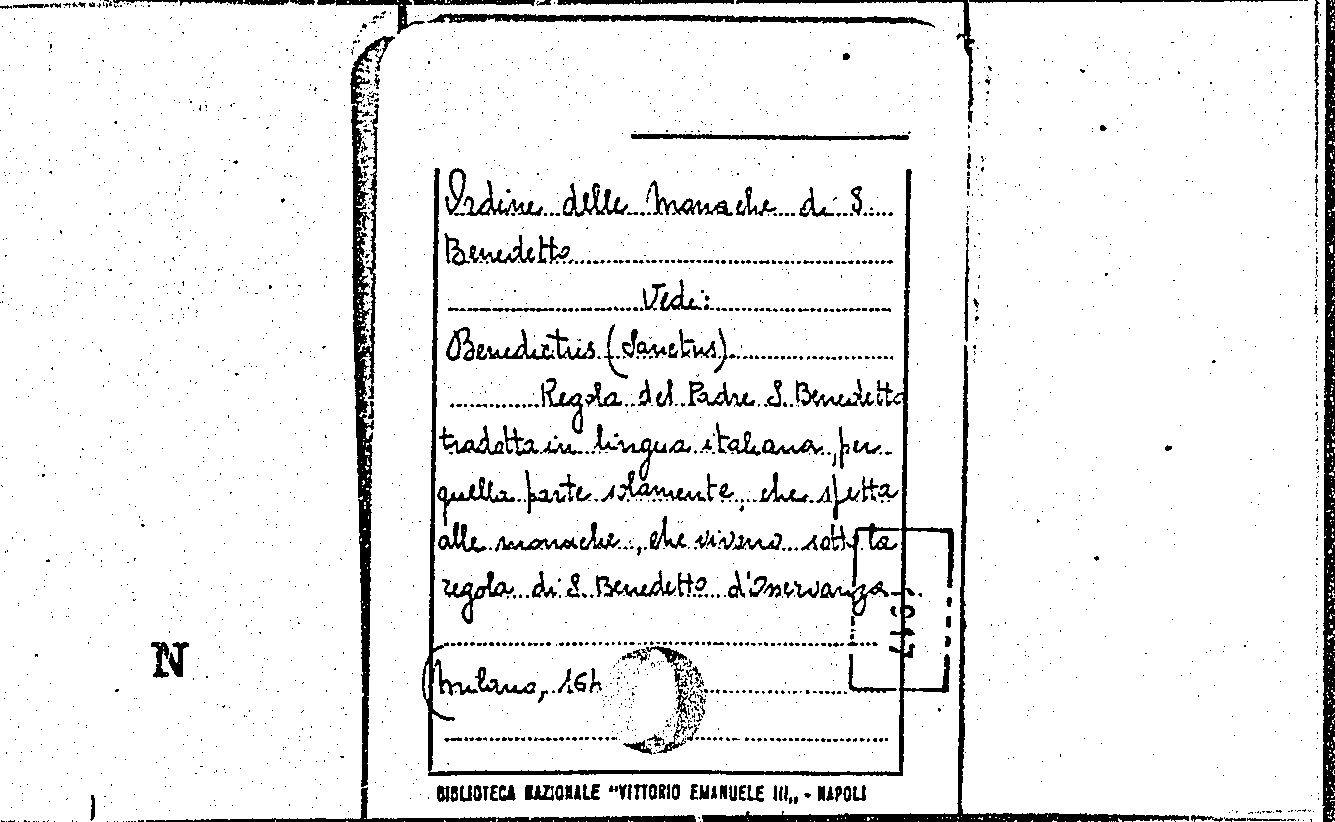 Ordine delle Monache di S.
Benedetto
Vedi:
Benedictus (Sanctus)
Regola del Padre S. Benedetto
tradotta in lingua italiana, per
quella parte solamente, che spetta
alle monache, che vivono sotto la
regola di S. Benedetto d'Osservanza
N
(Milano, 16
BIBLIOTECA NAZIONALE "VITTORIO EMANUELE III,, - NAPOLI